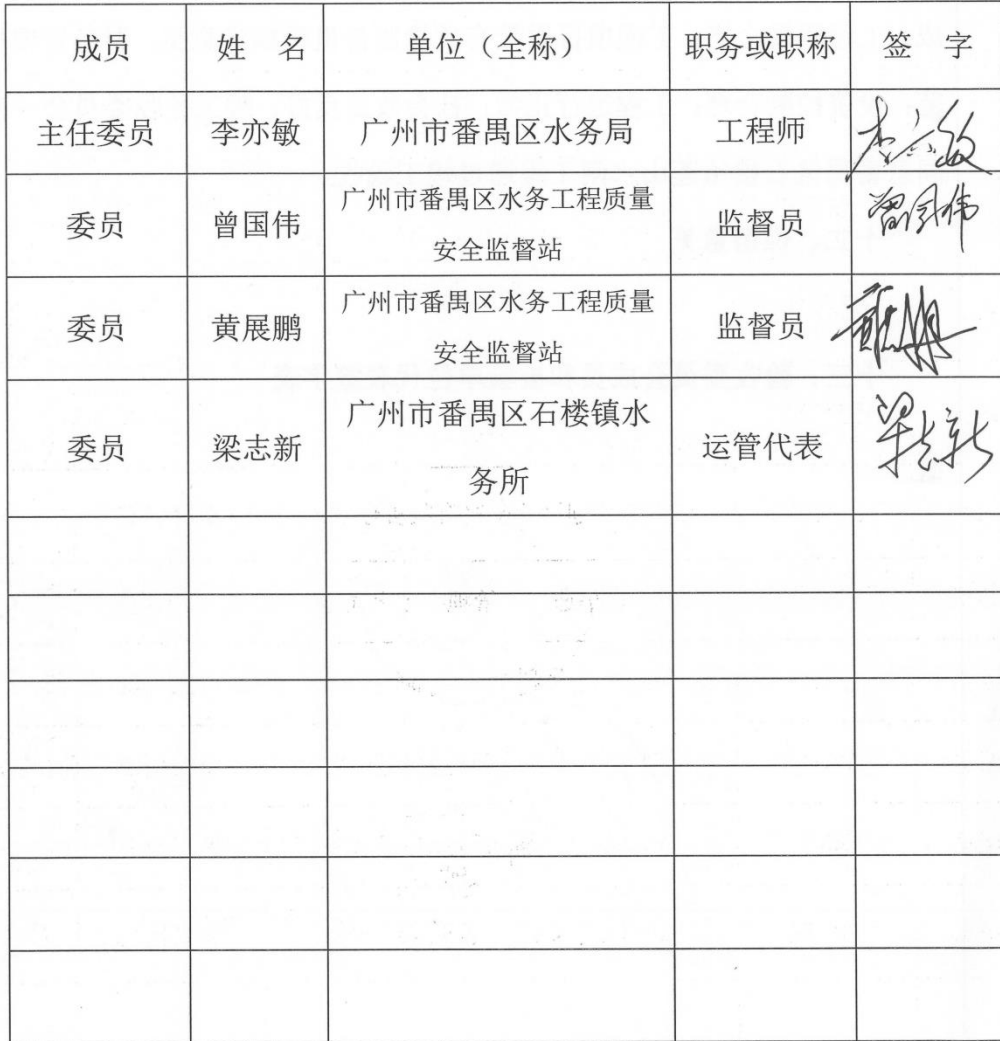 成员 姓 名 单位（全称） 职务或职称 签 字
主任委员 李亦敏 广州市番禺区水务局 工程师 李亦敏
委员 曾国伟 广州市番禺区水务工程质量安全监督站 监督员 曾国伟
委员 黄展鹏 广州市番禺区水务工程质量安全监督站 监督员
委员 梁志新 广州市番禺区石楼镇水务所 运管代表 梁志新